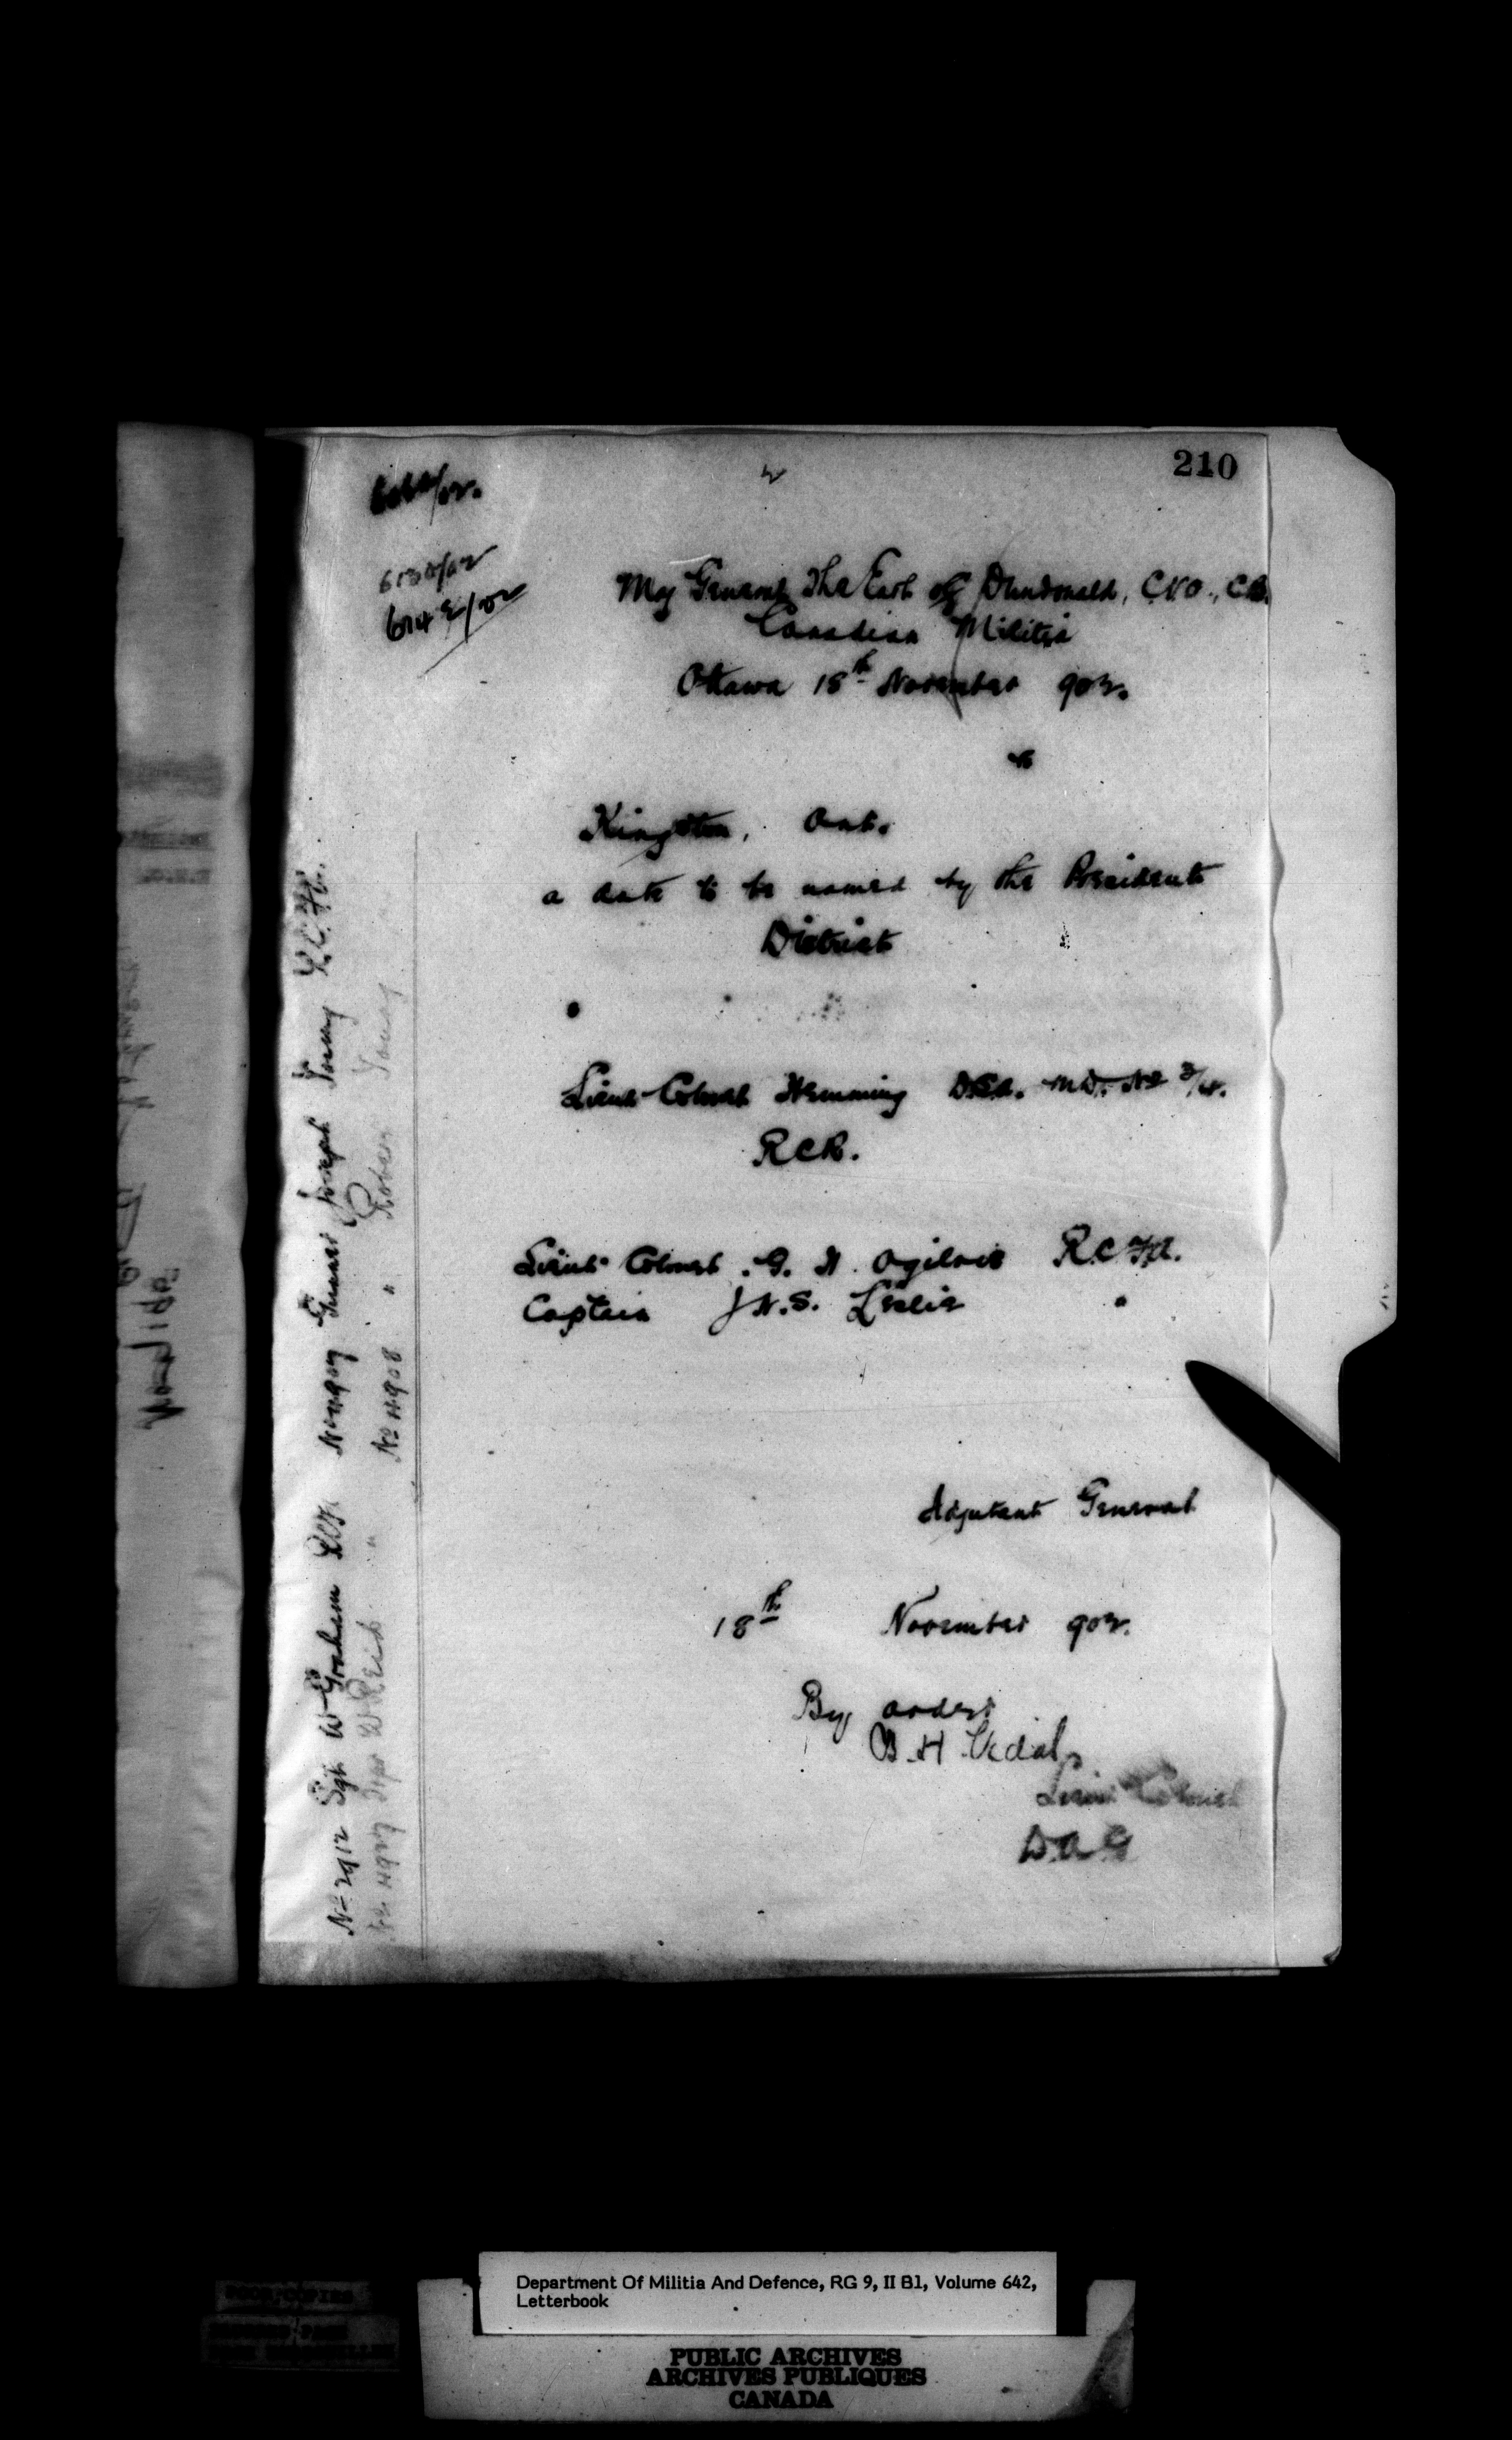 210
6130/02
6142/02
Maj General The Earl of Dundonald, C.V.O., C.B.
Canadian Militia
Ottawa 18th November 902.
to
Kingston, Ont.
a date to be named by the President
District
Lieut-Colonel Hemming D.O.C. M.D. No 3/4.
RCR.
Lieut-Colonel G. H. Ogilvie R.C.F.A.
Captain J N.S. Leslie "
Adjutant General
18th November 902.
By order
B H Vidal,
Lieut Colonel
D.A.G
Gunner Joseph Young
No 4908 " Robert Young
No 2912 Sgt W Graham
W Reid "
Department Of Militia And Defence, RG 9, II B1, Volume 642,
Letterbook
PUBLIC ARCHIVES
ARCHIVES PUBLIQUES
CANADA